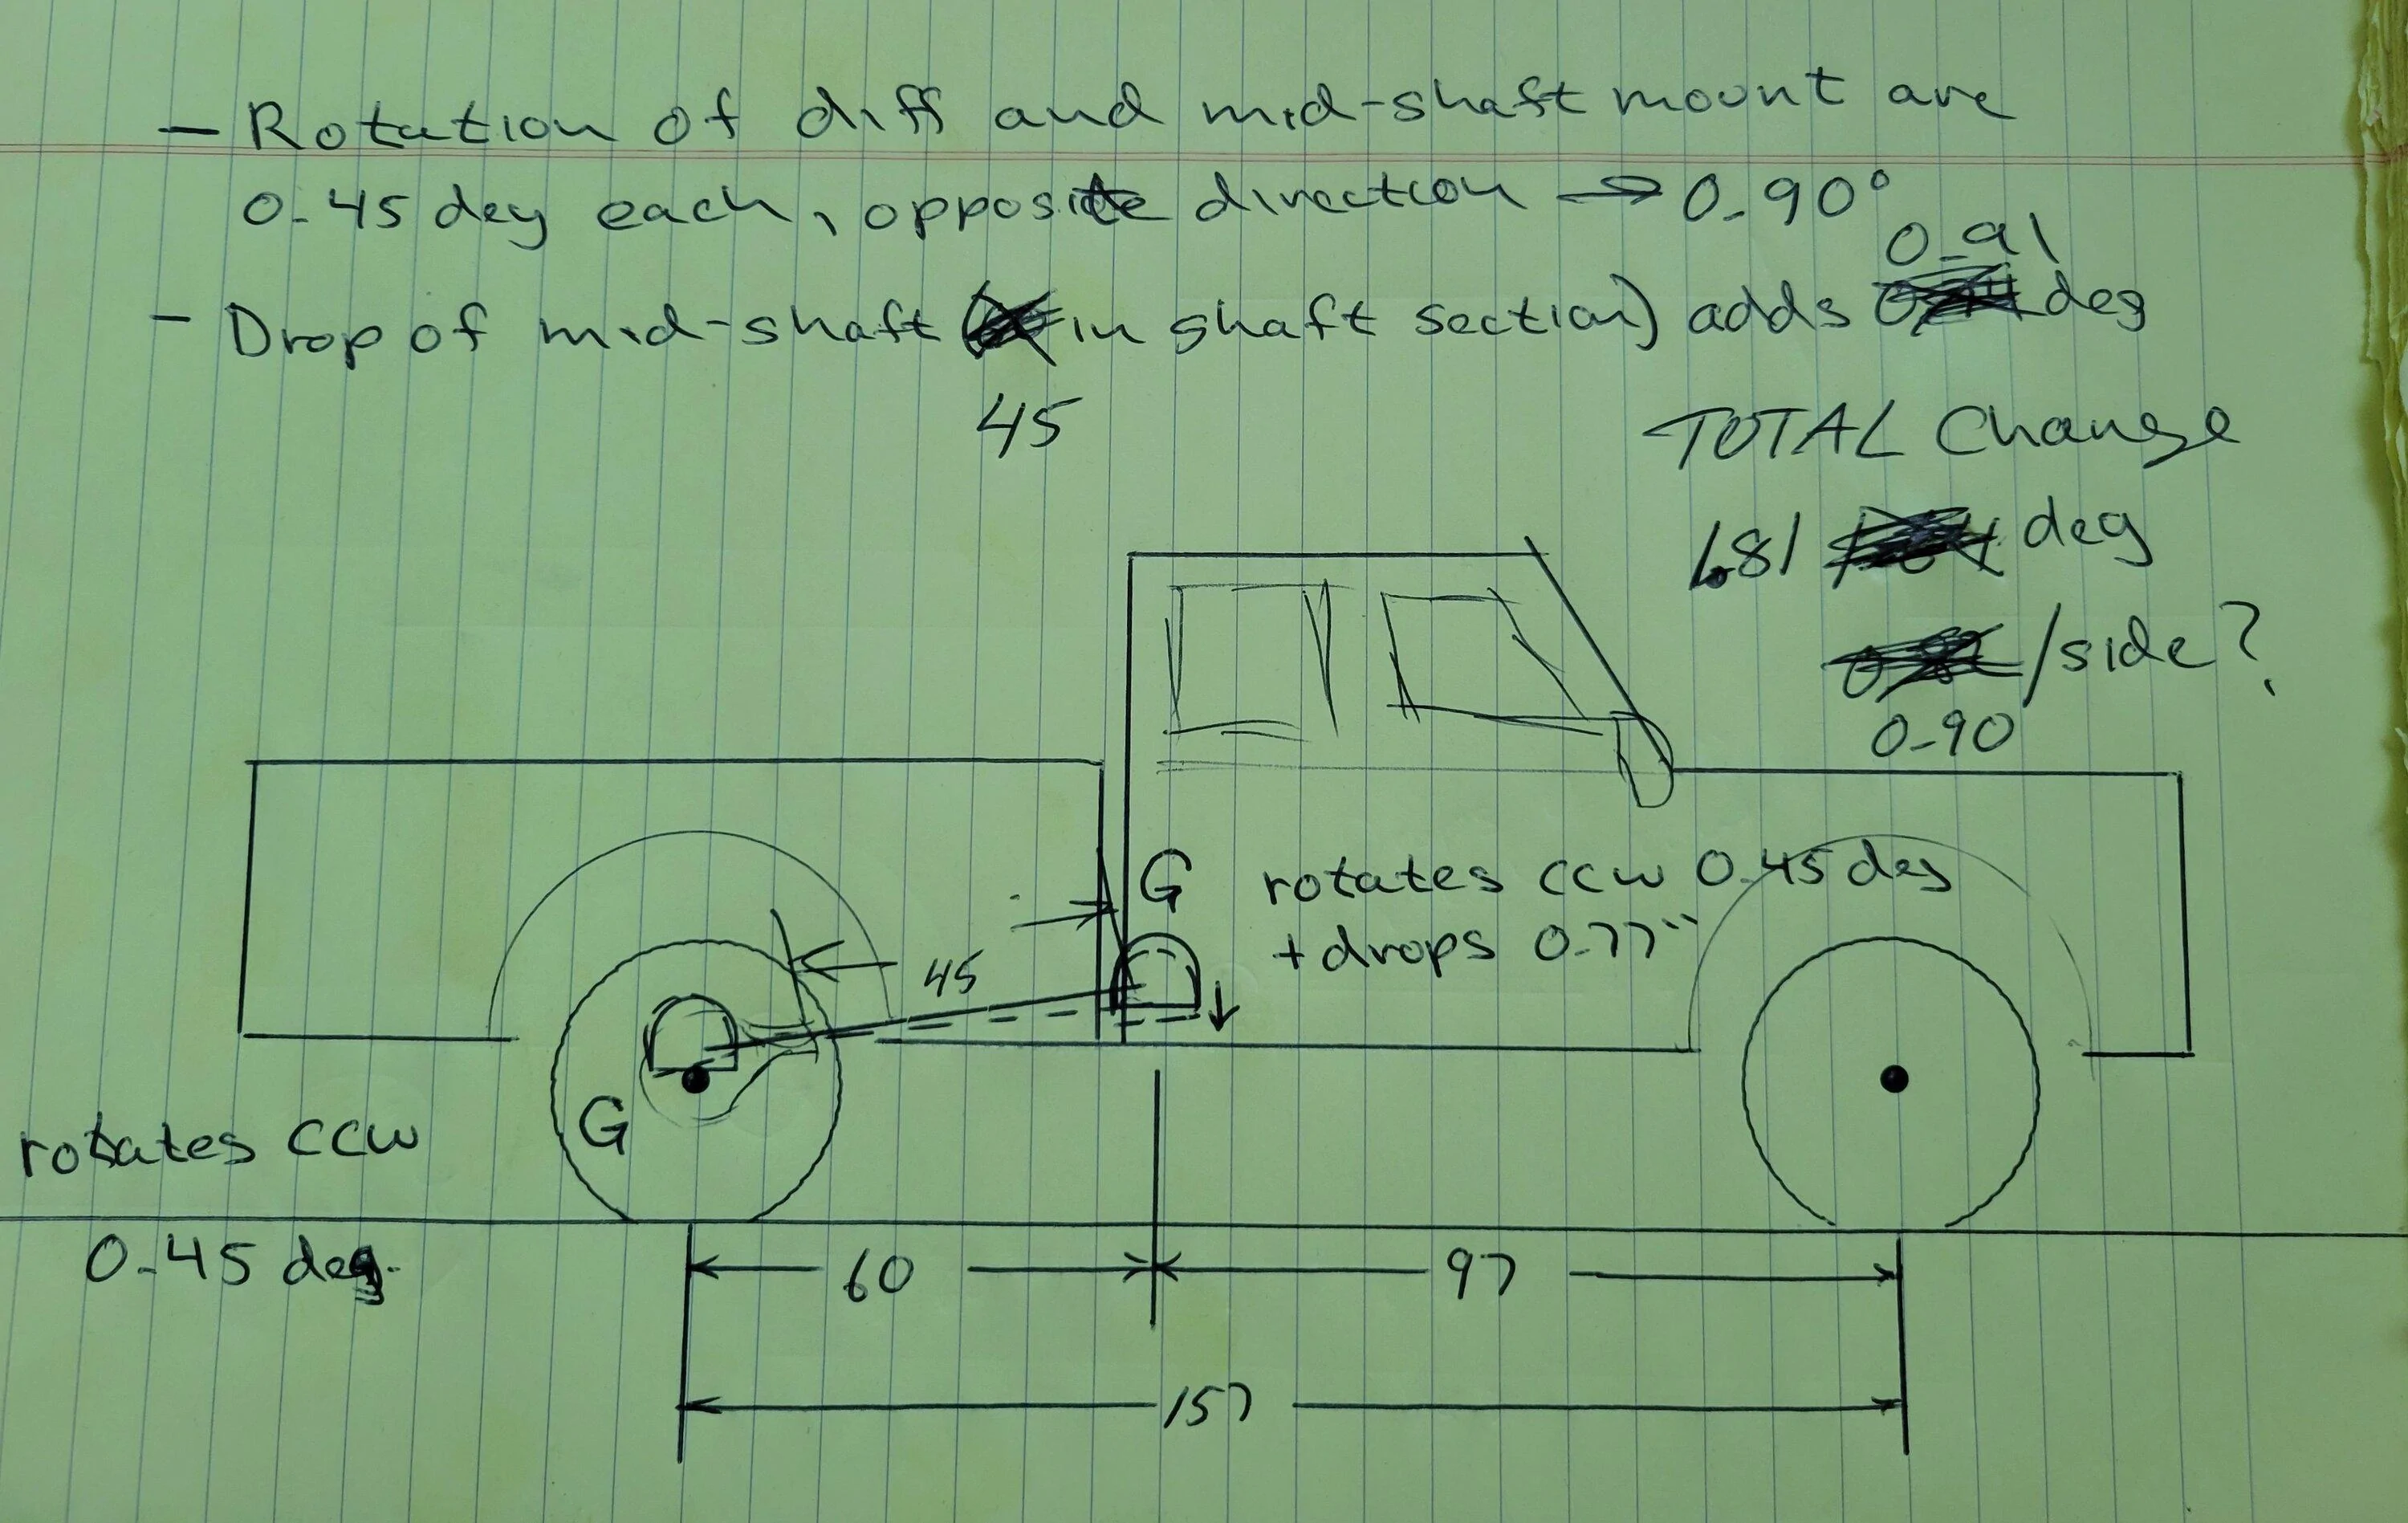 - Rotation of diff and mid-shaft mount are
0.45 deg each, opposite direction → 0.90°
0.91
- Drop of mid-shaft in shaft section) adds deg
45
TOTAL Change
1.81 deg
/side?
0.90
G rotates ccw 0.45 deg
+ drops 0.77"
45
G
rotates ccw
0.45 deg.
60
97
157